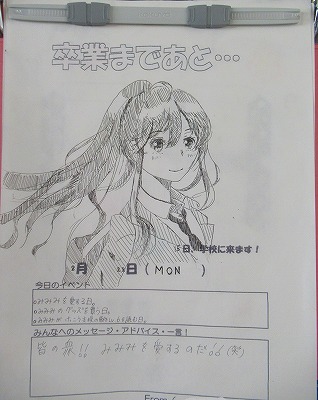 卒業まであと…
日、学校に来ます！
月 日(MON )
今日のイベント
みみみを愛する日。
みみみのグッズを買う日。
みみみが
みんなへのメッセージ・アドバイス・一言！
皆の衆!! みみみを愛するのだ!! (笑)
From